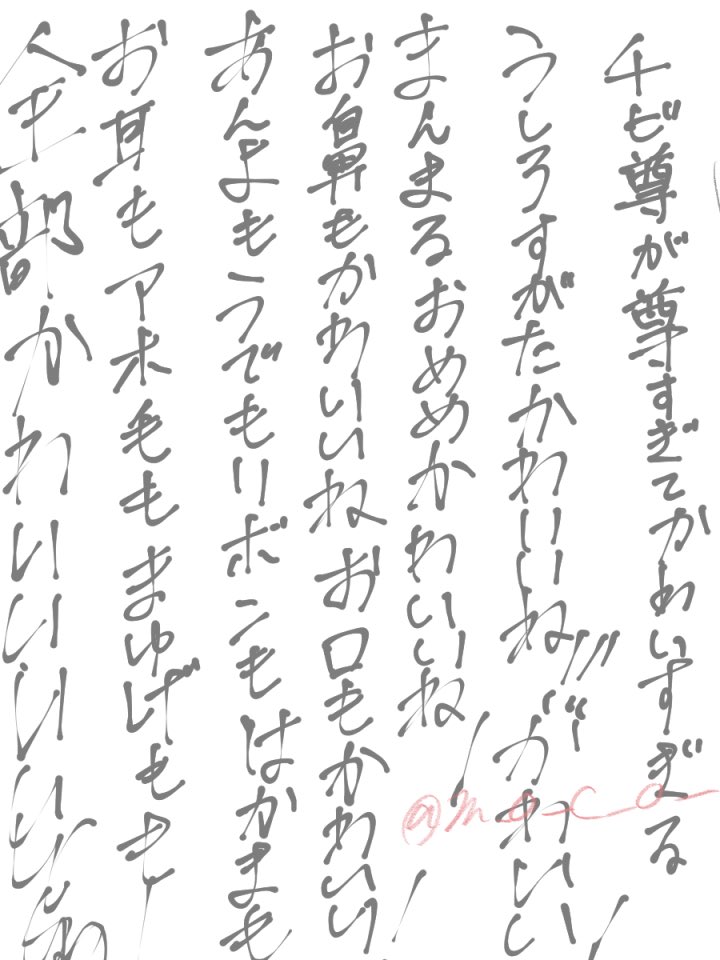 チビ尊が尊すぎてかわいすぎる
うしろすがたかわいいね!!! がわいい!
まんまるおめめかわいいね!
お鼻もかわいいねお口もかわいい!
あんよもうでもリボンもはかまも
お耳もアホ毛もまゆげもき
全部かわいいいいいい
@maca